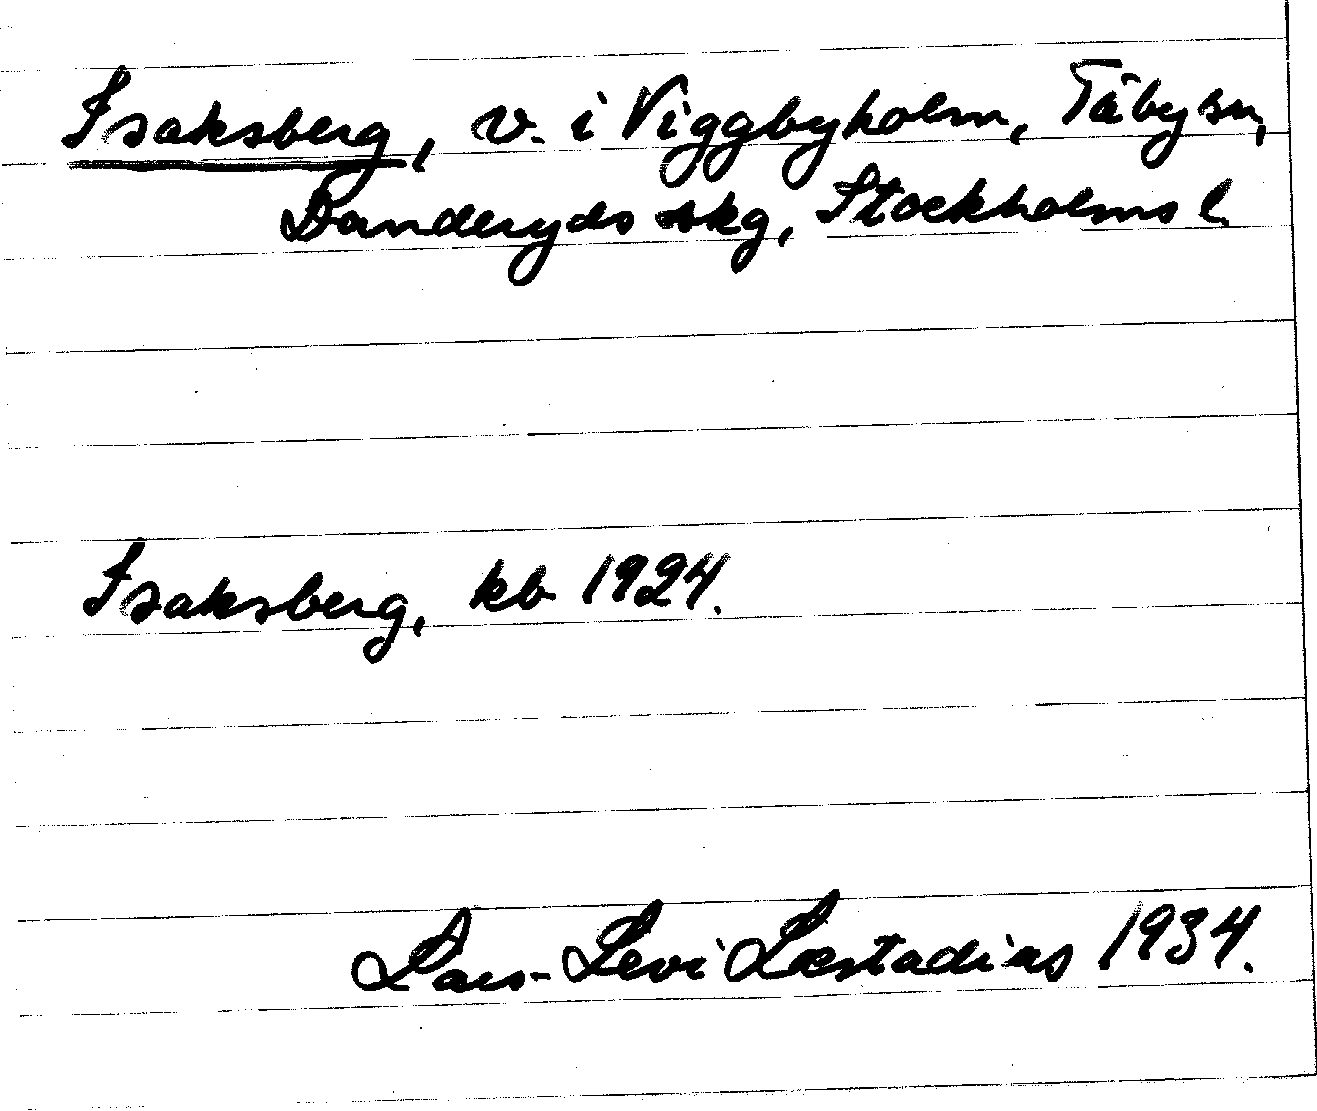 Isaksberg, v. i Viggbyholm, Täby sn,
Danderyds skg, Stockholms l.
Isaksberg, kb 1924.
Lars-Levi Læstadius 1934.